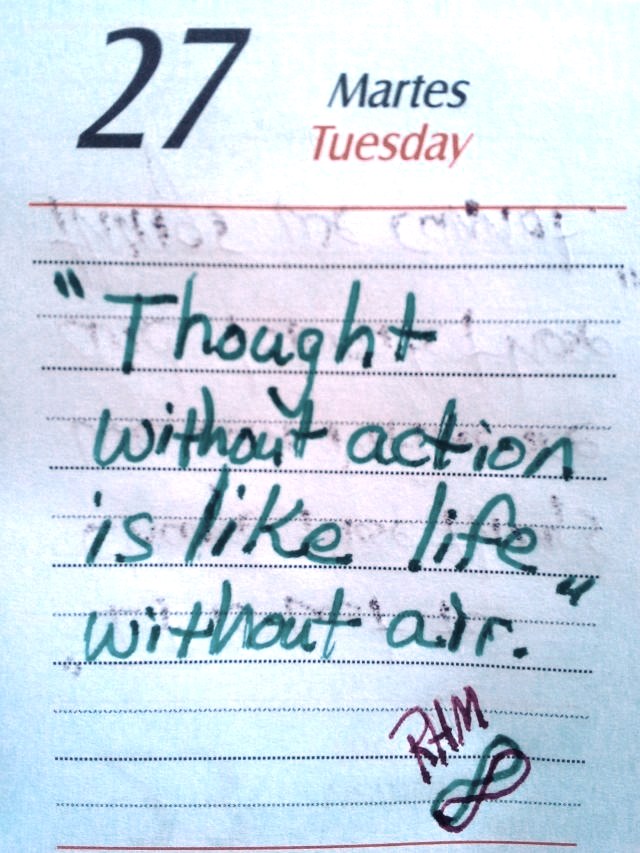 27
Martes
Tuesday
"Thought
without action
is like life
without air."
RHM